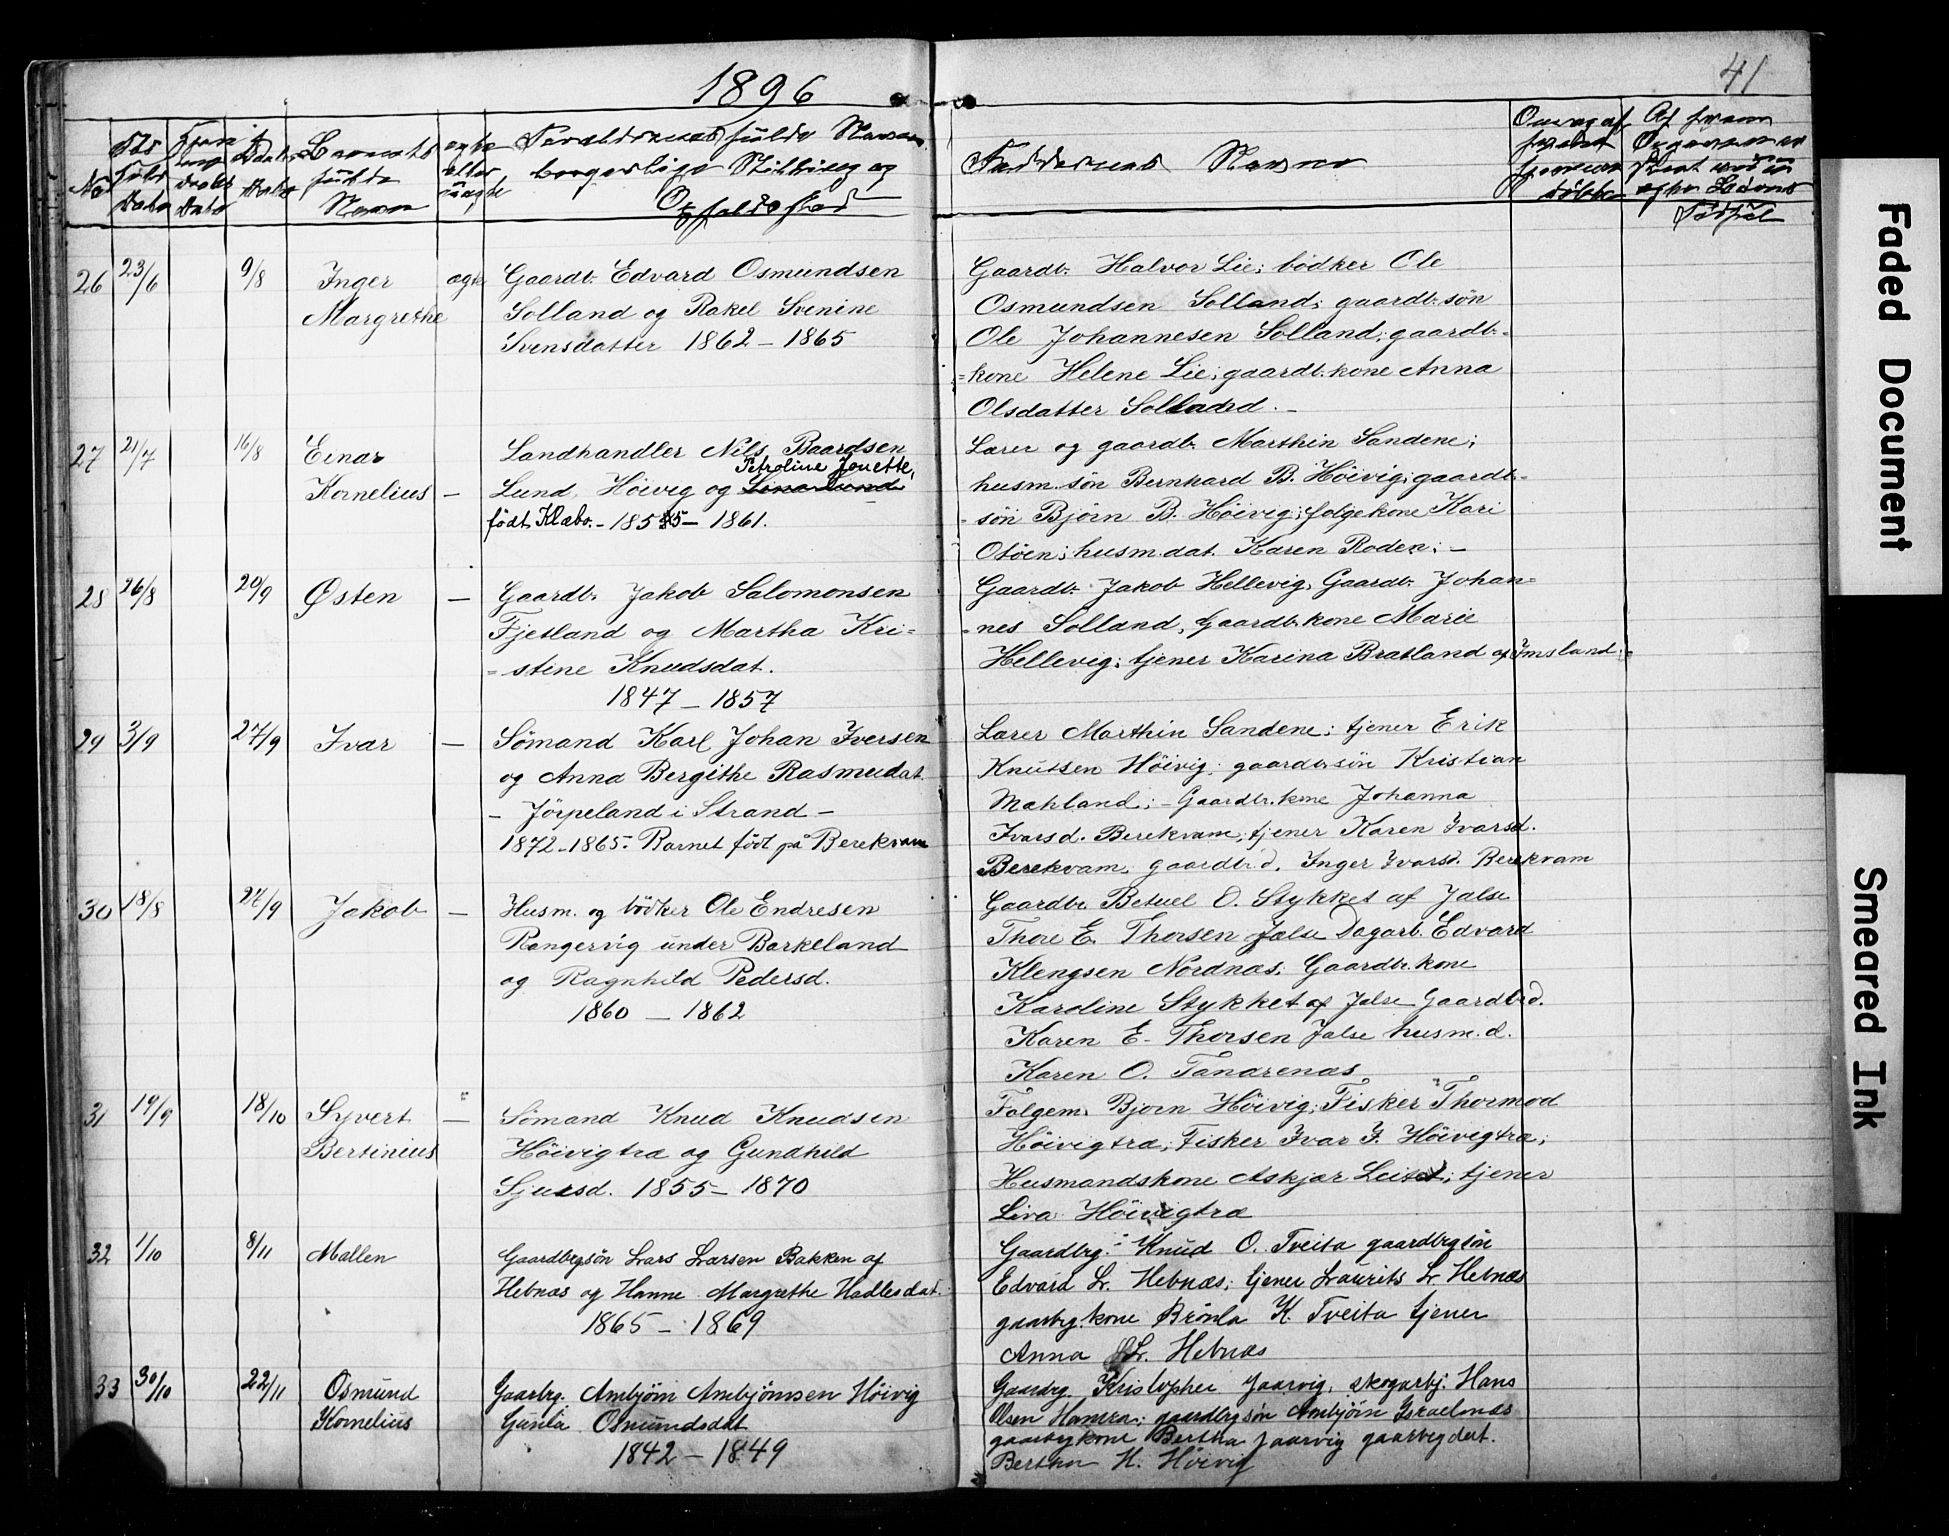 1896
41
No
Barnets
fulde
Navn
ægte
eller
uægte
Forældrenes fulde Navn,
borgerlige Stilling og
Opholdssted
Faddernes Navne
26 23/6 9/8 Inger ægte Gaardb. Edvard Osmundsen
Margrethe Solland og Rakel Svenine
Svensdatter 1862 – 1865
Gaardb. Halvor Lie; bödker Ole
Osmundsen Solland; gaardb. sön
Ole Johannesen Solland; gaardb.-
=kone Helene Lie; gaardb. kone Anna
Olsdatter Solland. –
27 21/7 16/8 Einar Landhandler Nils Baardsen
Petroline Jonette,
Kornelius – Lund, Höivig og Lina Lund
födt Klæbo. – 1855 – 1861.
Lærer og gaardb. Marthin Sandene;
husm. sön Bernhard B. Höivig; gaardb.-
-sön Björn B. Höivig; folgekone Kari
Osöen; husm.dat. Karen Roden; –
28 26/8 20/9 Østen – Gaardb. Jakob Salomonsen
Fjetland og Martha Kri=
=stine Knudsdat.
1847 – 1857
Gaardb. Jakob Hellevig, Gaardb. Johan=
=nes Solland, Gaardb. kone Marie
Hellevig; tjener Karina Bratland af Imsland.
29 3/9 27/9 Ivar – Sömand Karl Johan Iversen
og Anna Bergithe Rasmusdat.
– Jörpeland i Strand –
1872–1865. Barnet födt på Berekvam
Lærer Marthin Sandene; tjener Erik
Knutsen Höivig; gaardb.sön Kristian
Mahland; – Gaardbr. kone Johanna
Ivarsd. Berekvam; tjener Karen Ivarsd.
Berekvam; gaardb.d. Inger Ivarsd. Berekvam
30 18/8 27/9 Jakob – Husm. og bödker Ole Endresen
Rangervig under Barkeland
og Ragnhild Pedersd.
1860 – 1862
Gaardbr. Betuel O. Stykket af Jalse
Thore E. Thorsen Jalse Dagarb. Edvard
Klengsen Nordnæs; Gaardbr. kone
Karoline Stykket af Jalse Gaardb.d.
Karen E. Thorsen Jalse husm. d.
Karen O. Tanarenæs
31 19/9 18/10 Syvert – Sömand Knud Knudsen
Bertinius Höivigtræ og Gundhild
Sjursd. 1855 – 1870
Folgem. Bjorn Höivig; Fisker Thormod
Höivigtræ; Fisker Ivar J. Höivigtræ;
Husmandskone Askjær Leite; tjener
Liva Höivigtræ
32 1/10 8/11 Mallen Gaardbrgsön Lars Larsen Bakken af
Hebnæs og Hanne Margrethe Hadlesdat.
1865 – 1869
Gaardbrg. Knud O. Tveita gaardbrgsön
Edvard Lr. Hebnæs; tjener Laurits Lr. Hebnæs
gaarbrg. kone Brönla K. Tveita tjener
Anna Lr. Hebnæs
33 30/10 22/11 Osmund Gaarbrg. Ambjörn Ambjörnsen Höivig
Kornelius Gunla Osmundsdat
1842 – 1849
Gaardbrg. Kristopher Jaarvig, skogarbj. Hans
Olsen Hamra; gaardbrgsön Ambjörn Israelnæs
gaarbrgkone Bertha Jaarvig gaarbrgdat.
Bertha H. Höivig
Faded Document
Smeared Ink